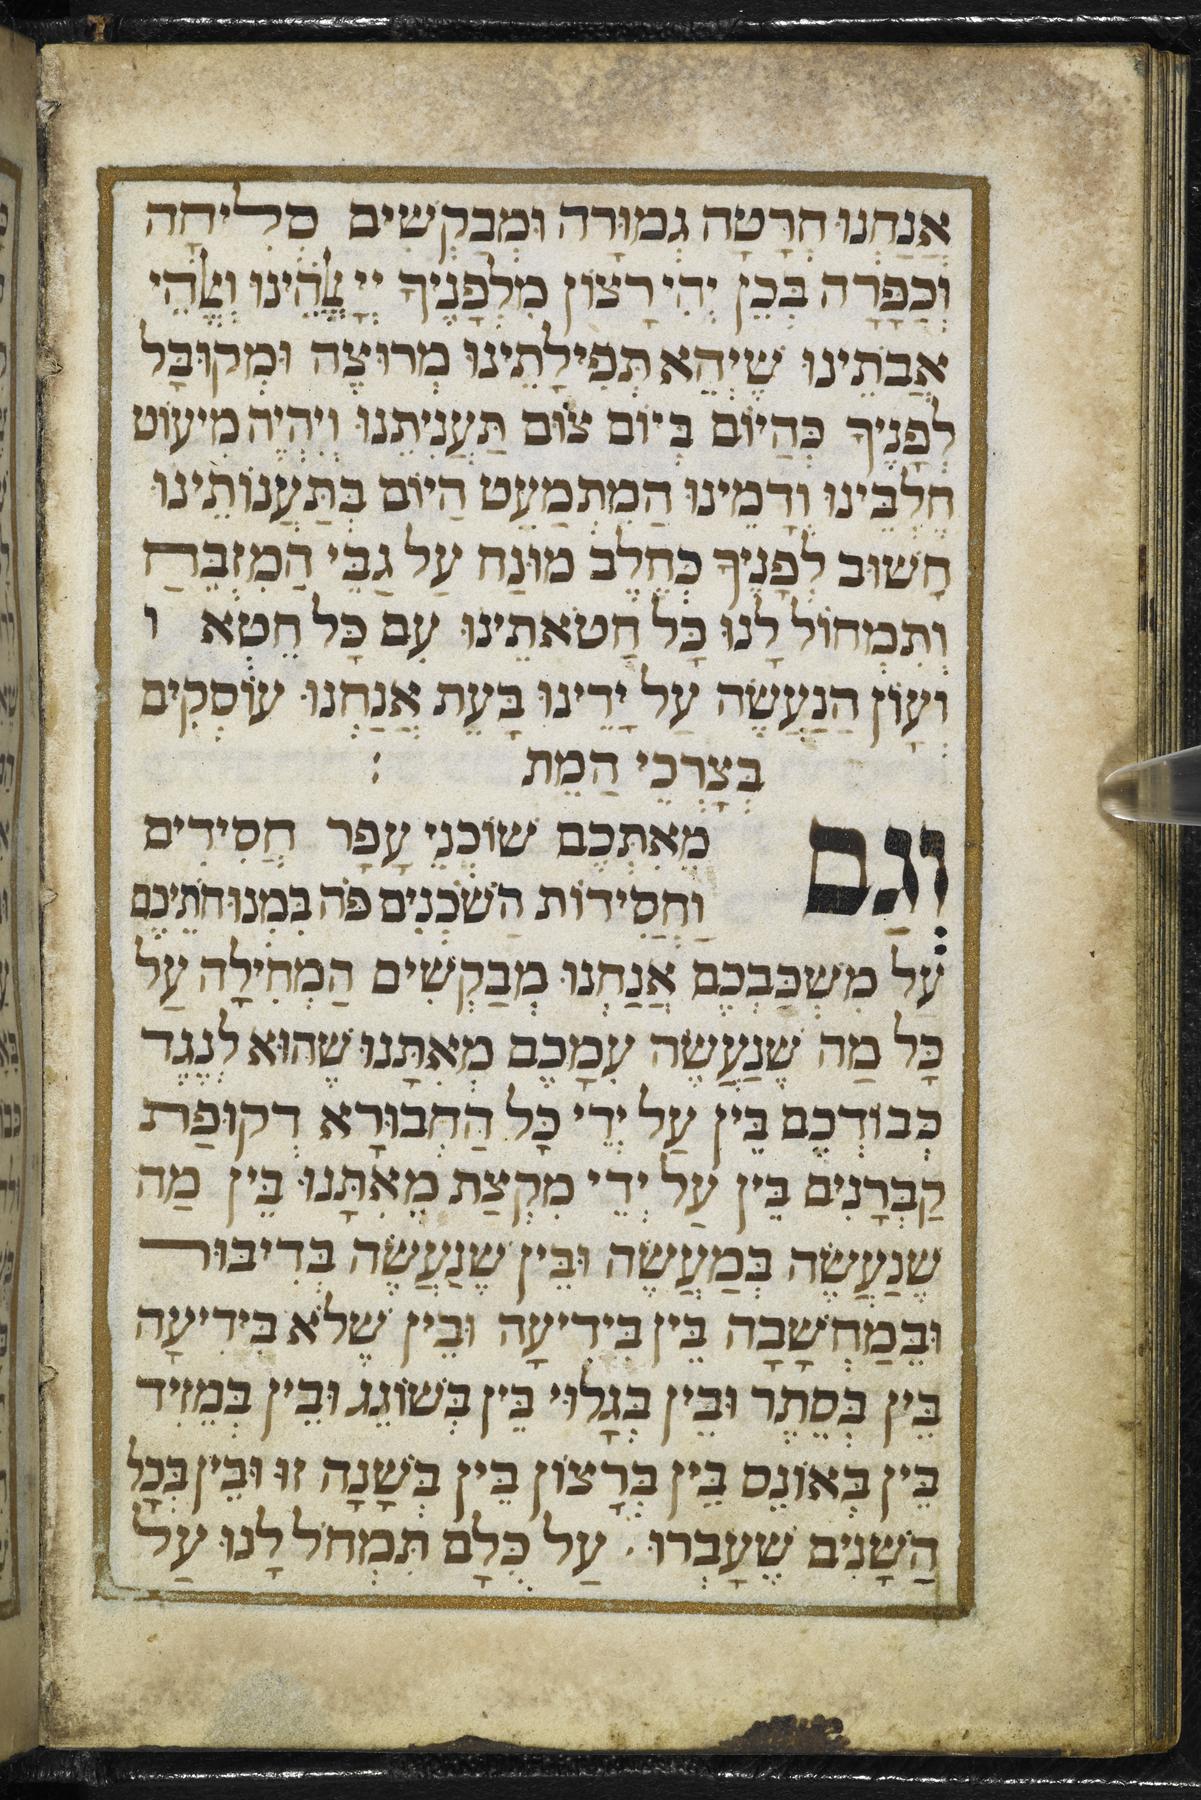 אֲנַחְנוּ חְרָטָה גְמוּרָה וּמְבַקְשִׁים סְלִיחָה
וְכַפָּרָה בְּכֵן יְהִי רָצוֹן מִלְפָנֶיךָ יְיָ אֱלֹהֵינוּ וֶאֱלֹהֵי
אֲבֹתֵינוּ שֶׁיְהֵא תְּפִילָתֵינוּ מְרוּצֶה וּמְקוּבָּל
לְפָנֶיךָ כְּהַיוֹם בְּיוֹם צוֹם תַּעֲנִיתֵנוּ וְיִהְיֶה מִיעוּט
חֶלְבֵּינוּ וְדָמֵינוּ הַמִתְמַעֵט הַיוֹם בְּתַּעֲנוֹתֵינוּ
חָשׁוּב לְפָנֶיךָ כְּחֵלֶב מוּנַח עַל גַבֵּי הַמִזְבֵּחַ
וְתִמְחוֹל לָנוּ כָּל חַטֹאתֵינוּ עִם כָּל חֵטְא ו
וְעָוֹן הַנַעֲשֶׂה עַל יָדֵינוּ בָּעֵת אֲנַחְנוּ עוֹסְקִים
בְּצָרְכֵי הַמֵת :
וְגַם מֵאִתְּכֶם שׁוֹכְנֵי עָפָר חֲסִידִים
וַחֲסִידוֹת הַשֹׁכְנִים פֹּה בִּמְנוּחֹתֵיכֶם
עַל מִשְׁכַּבְכֶם אֲנַחְנוּ מְבַקְשִׁים הַמְחִילָה עַל
כָּל מַה שֶׁנַעֲשֶׂה עִמָכֶם מְאִתָּנוּ שֶׁהוּא לְנֶגֶד
כְּבוֹדְכֶם בֵּין עַל יְדֵי כָּל הַחְבוּרָא דְקוּפַּת
קַבְּרָנִים בֵּין עַל יְדֵי מִקְצַת מֵאִתָּנוּ בֵּין מַה
שֶׁנַעֲשֶׂה בְּמַעֲשֶׂה וּבֵין שֶׁנַעֲשֶׂה בְּדִיבּוּר
וּבְמַחְשָׁבָה בֵּין בִּידִיעָה וּבֵין שֶׁלֹא בִּידִיעָה
בֵּין בְּסֵתֶר וּבֵין בְּגָלוּי בֵּין בְּשׁוֹגֵג וּבֵין בְּמֵזִיד
בֵּין בְּאוֹנֶס בֵּין בְּרָצוֹן בֵּין בְּשָׁנָה זוּ וּבֵין בְּכָל
הַשָׁנִים שֶׁעָבְרוּ · עַל כֻּלָם תִּמְחֹל לָנוּ עַל